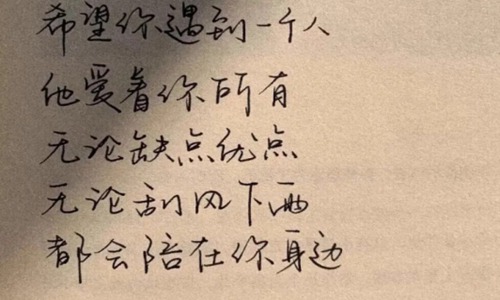 希望你遇到一个人
他爱着你所有
无论缺点优点
无论刮风下雨
都会陪在你身边